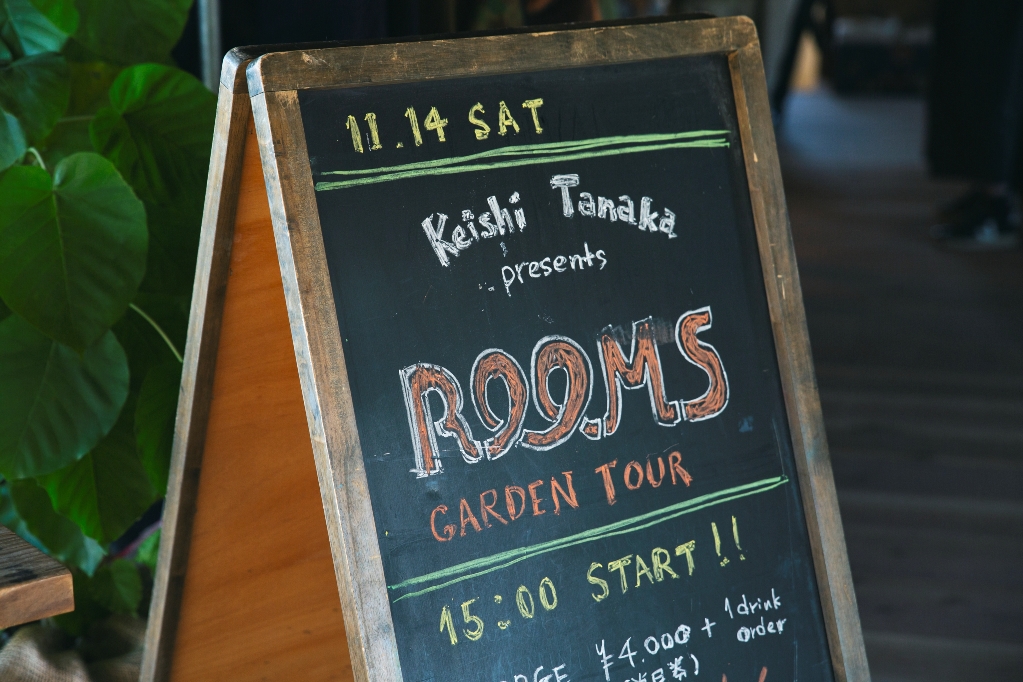 11.14 SAT
Keishi Tanaka
presents
ROOMS
GARDEN TOUR
15:00 START!!
¥4.000 + 1drink
order